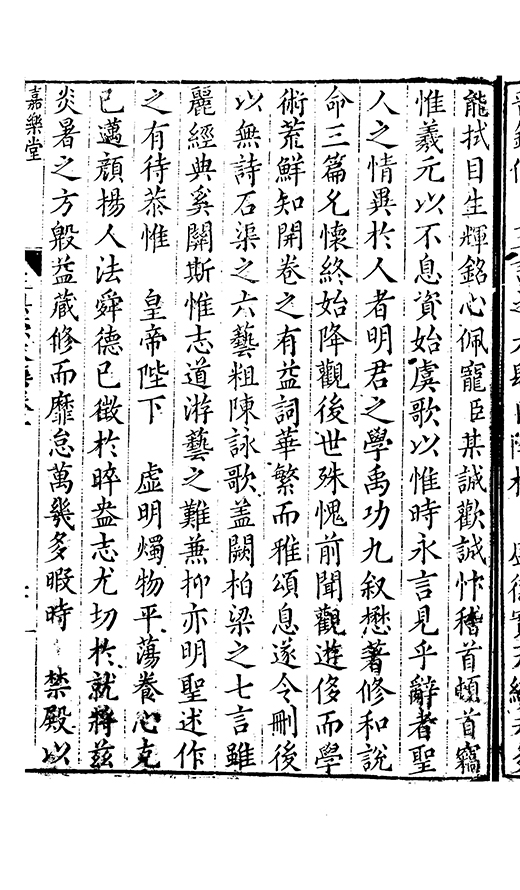 能拭目生輝銘心佩寵臣某誠歡誠忭稽首頓首竊
惟羲元以不息資始虞歌以惟時永言見乎辭者聖
人之情異於人者明君之學禹功九叙懋著修和說
命三篇允懷終始降觀後世殊愧前聞觀遊侈而學
術荒鮮知開卷之有益詞華繁而雅頌息遂令刪後
以無詩石渠之六藝粗陳詠歌蓋闕柏梁之七言雖
麗經典奚關斯惟志道游藝之難兼抑亦明聖述作
之有待恭惟 皇帝陛下 虛明燭物平蕩養心克
已邁顏揚人法舜德已徵於晬盎志尤切於就將茲
炎暑之方殷益藏修而靡怠萬幾多暇時 禁殿以
嘉樂堂